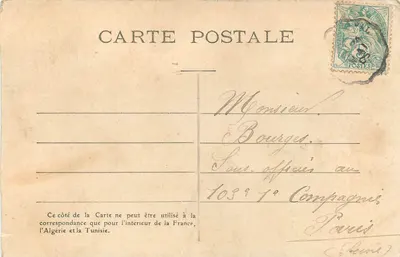 CARTE POSTALE
Monsieur
Bourges
Sous officier au
103e 1e Compagnie
Paris
Ce côté de la Carte ne peut être utilisé à la
correspondance que pour l'intérieur de la France,
l'Algérie et la Tunisie.